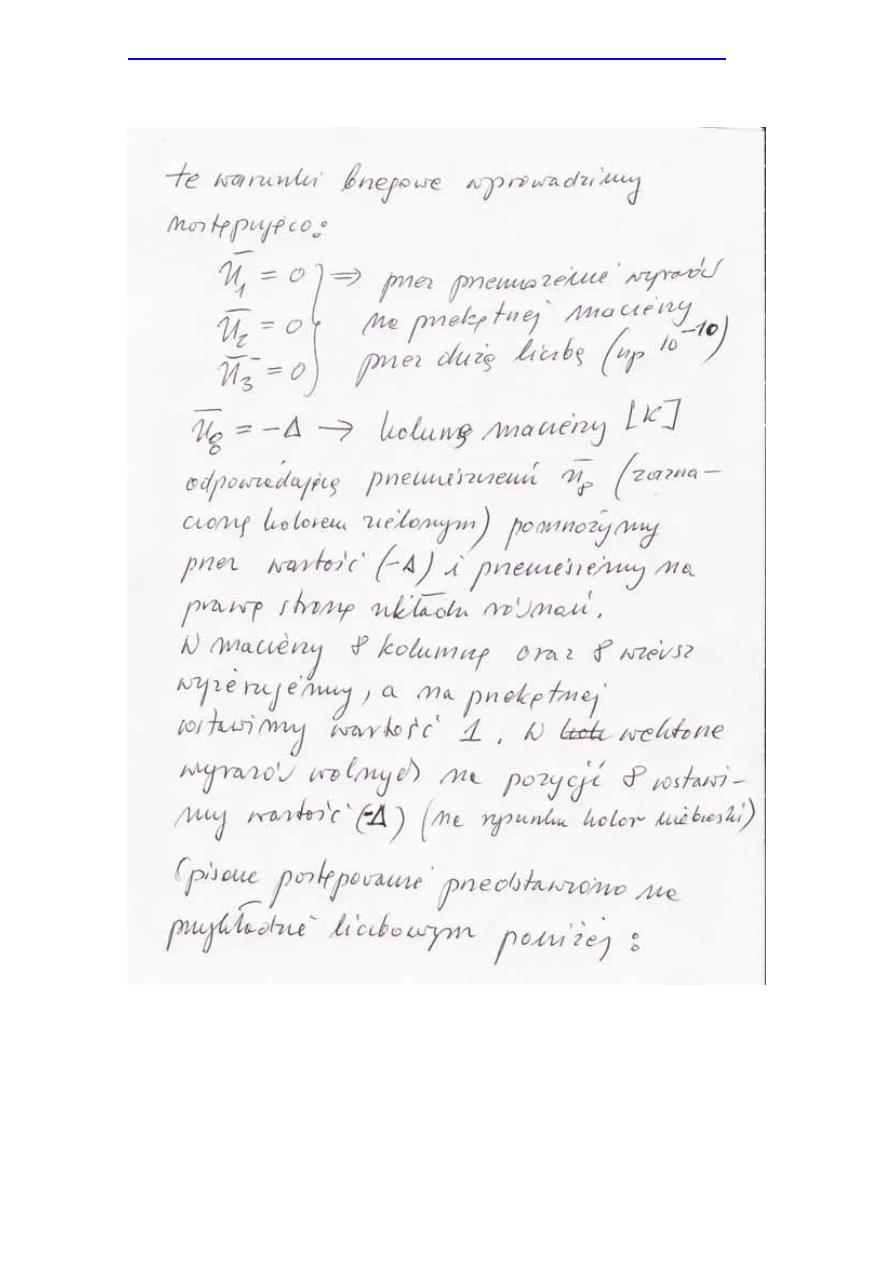 te warunki brzegowe wprowadzimy
następująco:
ū₁ = 0 } ⇒ przez przemnożenie wyrazów
ū₂ = 0 } na przekątnej macierzy
ū₃ = 0 } przez dużą liczbę (np 10⁻¹⁰)
ū₈ = -Δ → kolumnę macierzy [K]
odpowiadającą przemieszczeniu ū₈ (zazna-
czoną kolorem zielonym) pomnożymy
przez wartość (-Δ) i przeniesiemy na
prawą stronę układu równań.
W macierzy 8 kolumnę oraz 8 wiersz
wyzerujemy, a na przekątnej
wstawimy wartość 1. W wektorze
wyrazów wolnych na pozycji 8 wstawi-
my wartość (-Δ) (na rysunku kolor niebieski)
Opisane postępowanie przedstawiono na
przykładzie liczbowym poniżej: